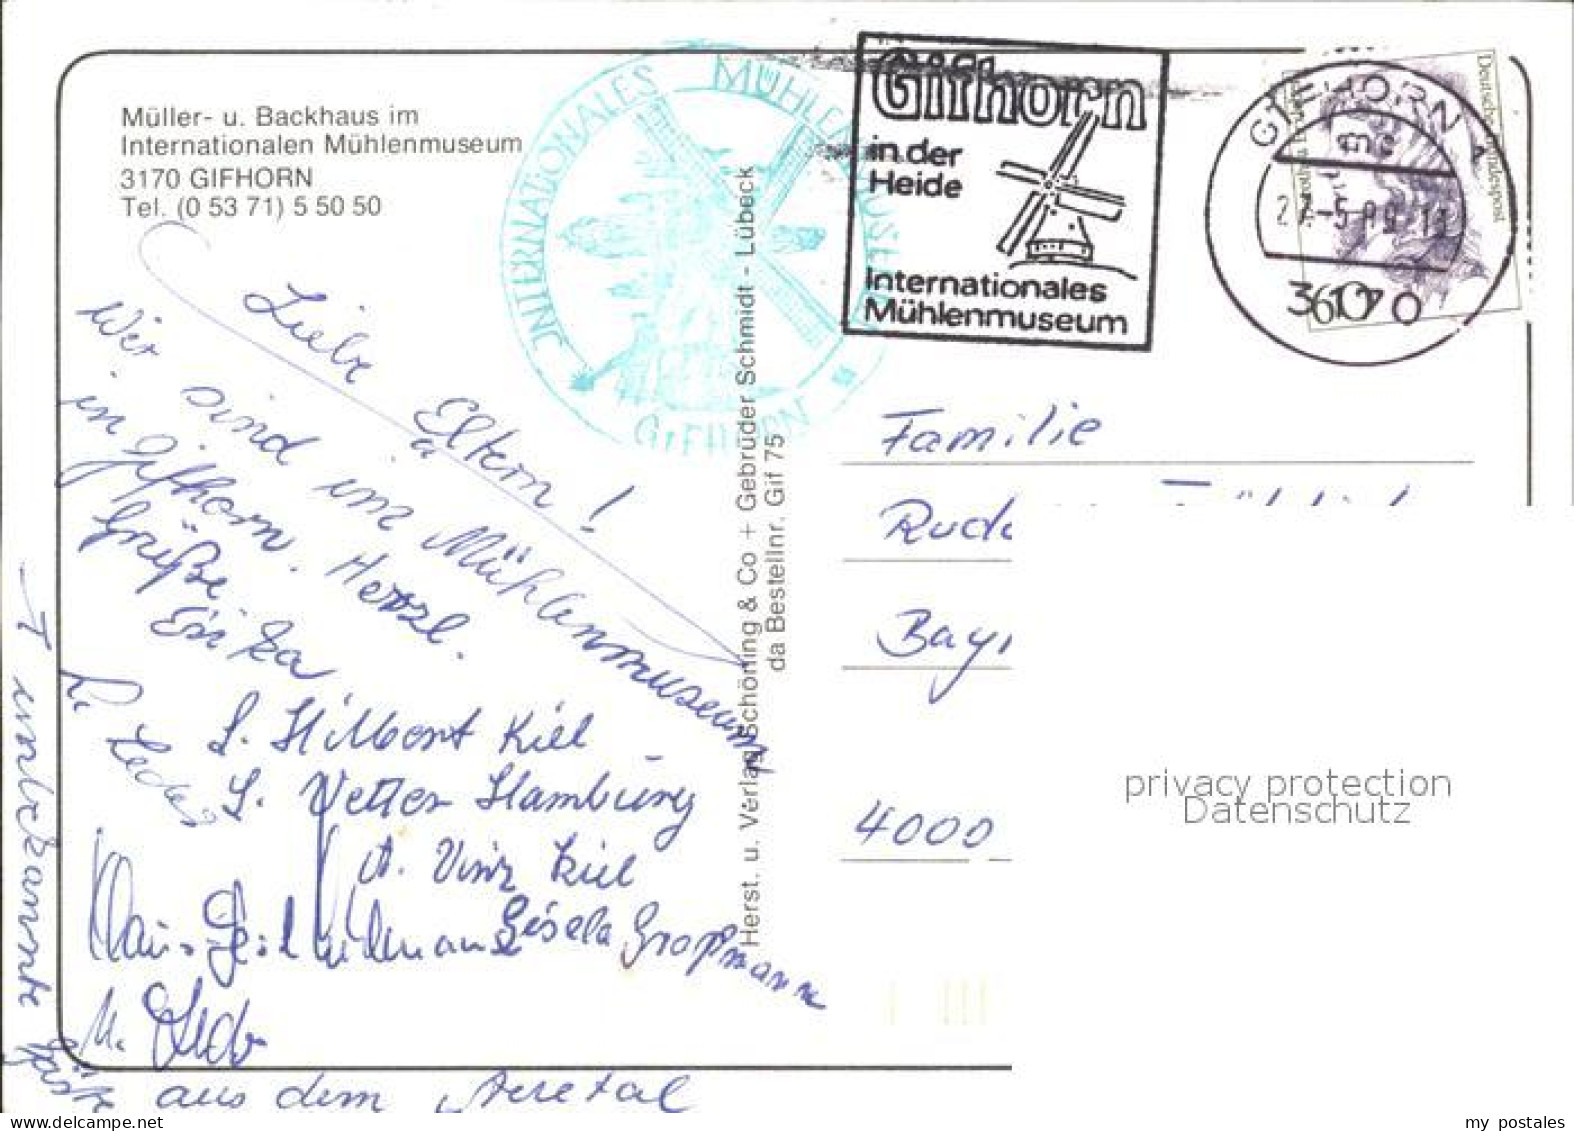 Müller- u. Backhaus im
Internationalen Mühlenmuseum
3170 GIFHORN
Tel. (0 53 71) 5 50 50
INTERNATIONALES MÜHLENMUSEUM
GIFHORN
Gifhorn
in der
Heide
Internationales
Mühlenmuseum
GIFHORN 1
mc
-5.89
3170
Deutsche Bundespost
60
Liebe Eltern!
Wir sind im Mühlenmuseum
in Gifhorn. Herzl.
Grüße
Erika
L. Hilbert Kiel
Vetter Hamburg
Kiel
Gisela Großmann
M.
unbekannte Gäste
aus dem
Herst. u. Verlag Schöning & Co + Gebrüder Schmidt - Lübeck
da Bestellnr. Gif 75
Familie
4000
privacy protection
Datenschutz
www.delcampe.net
my postales